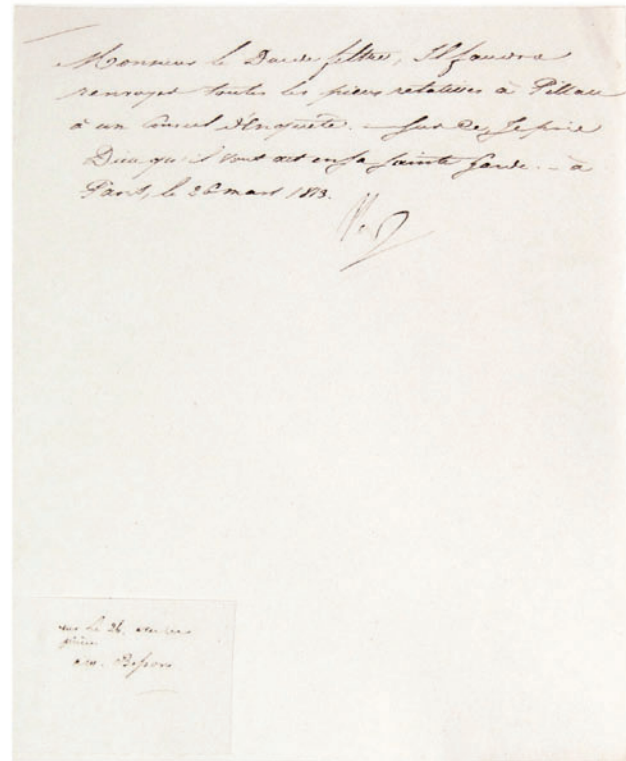 Monsieur le Duc de feltre, Il faudra
renvoyer toutes les pièces relatives à Pillau
à un Conseil d'Enquête. – Sur ce, Je prie
Dieu qu'il vous ait en sa sainte garde. – à
Paris, le 26 mars 1813.
Np
le 26